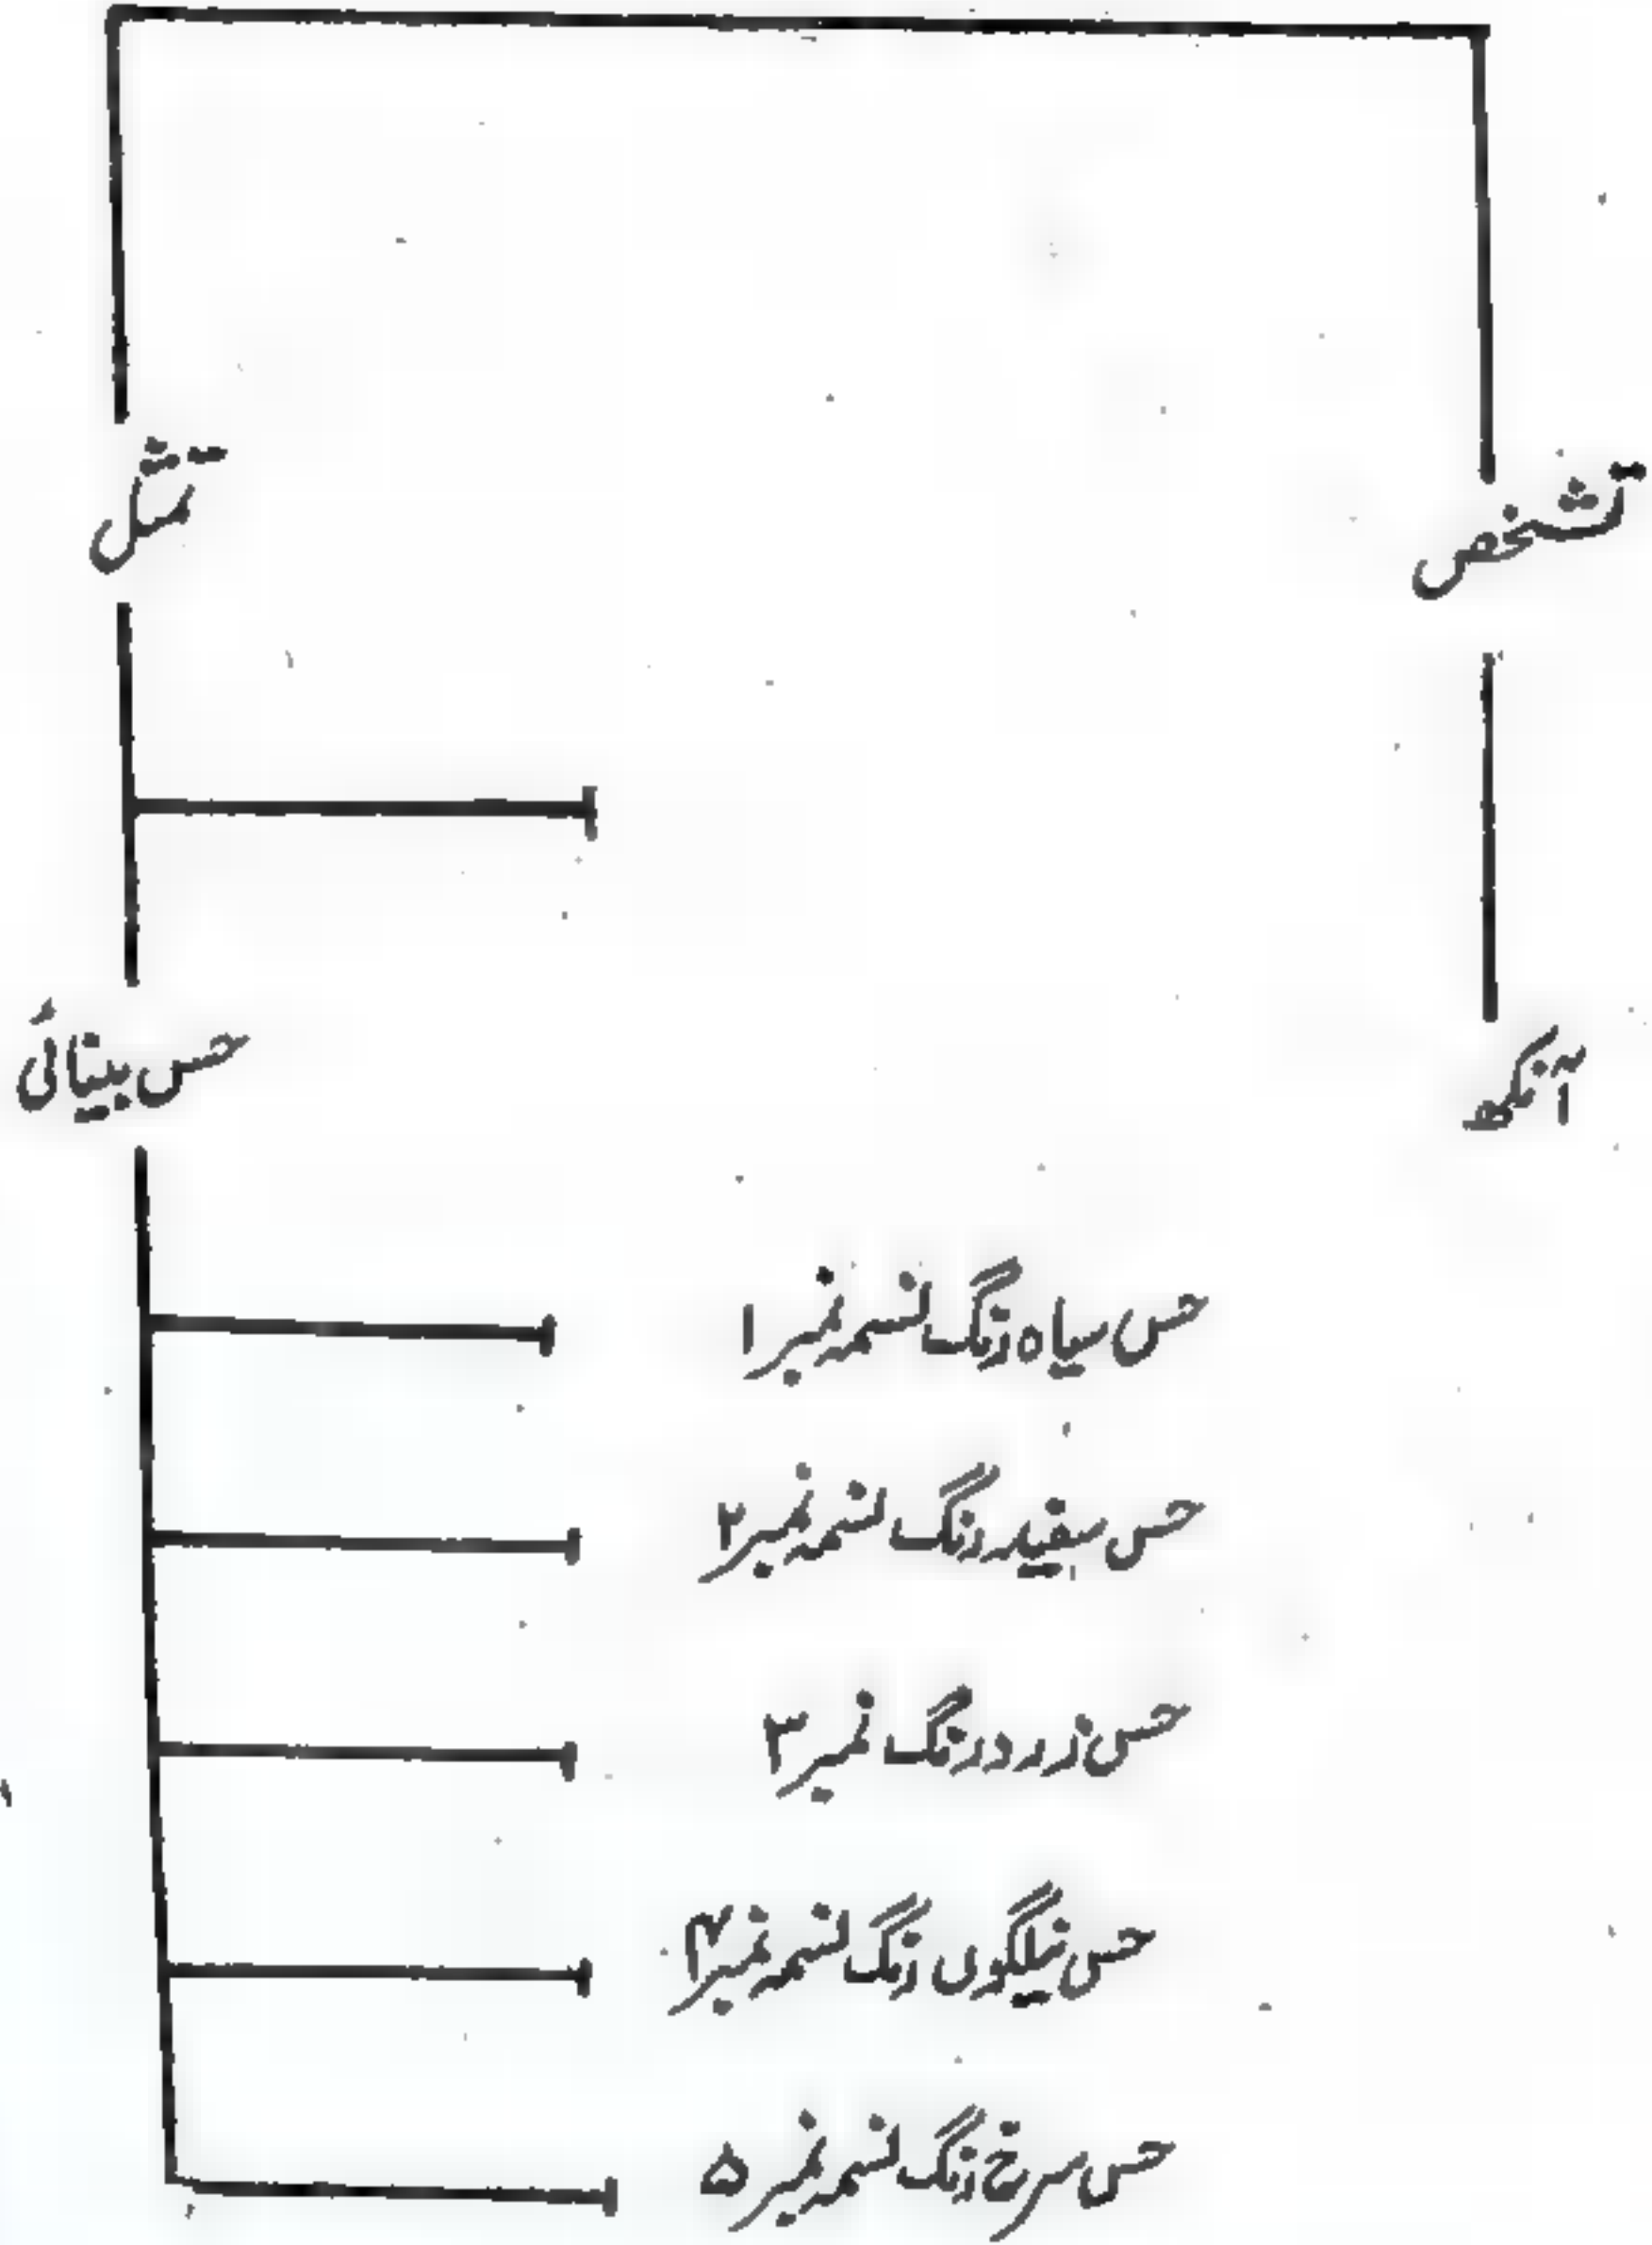 تشخص
تمثل
آنکھ
حس بینائی
حس سیاہ رنگ نسمہ نمبر ۱
حس سفید رنگ نسمہ نمبر ۲
حس زرد رنگ نمبر ۳
حس نیلگوں رنگ نسمہ نمبر ۴
حس سرخ رنگ نسمہ نمبر ۵